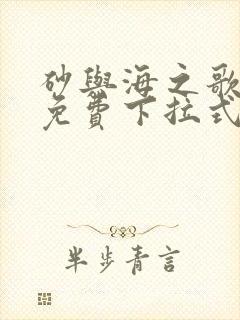 砂與海之歌
免費下拉式
半步青言